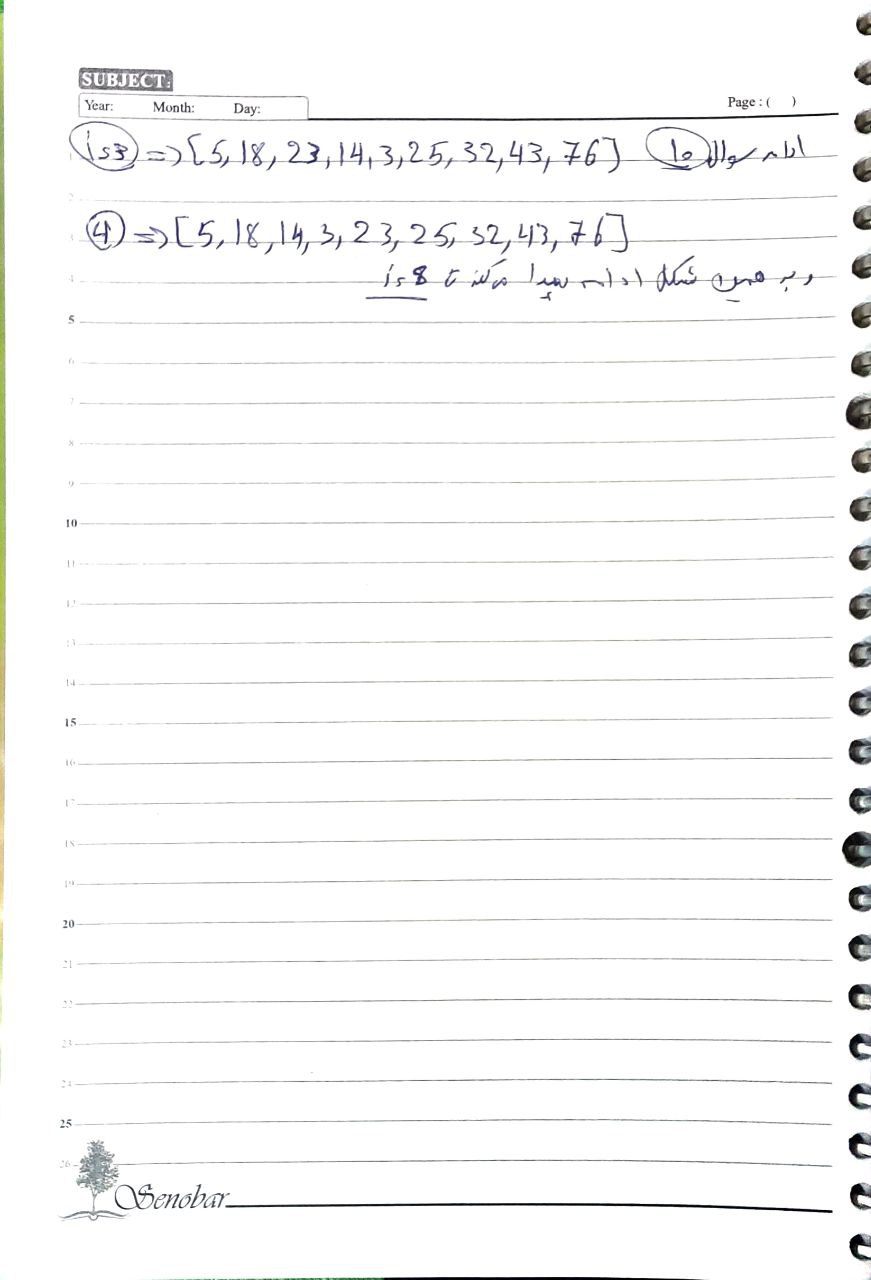 SUBJECT:
Year: Month: Day: Page : ( )
ادامه سوال 10
i=3 => [5, 18, 23, 14, 3, 25, 32, 43, 76]
4 => [5, 18, 14, 3, 23, 25, 32, 43, 76]
و به همین شکل ادامه پیدا میکند تا i=8
1
2
3
4
5
6
7
8
9
10
11
12
13
14
15
16
17
18
19
20
21
22
23
24
25
26
Senobar